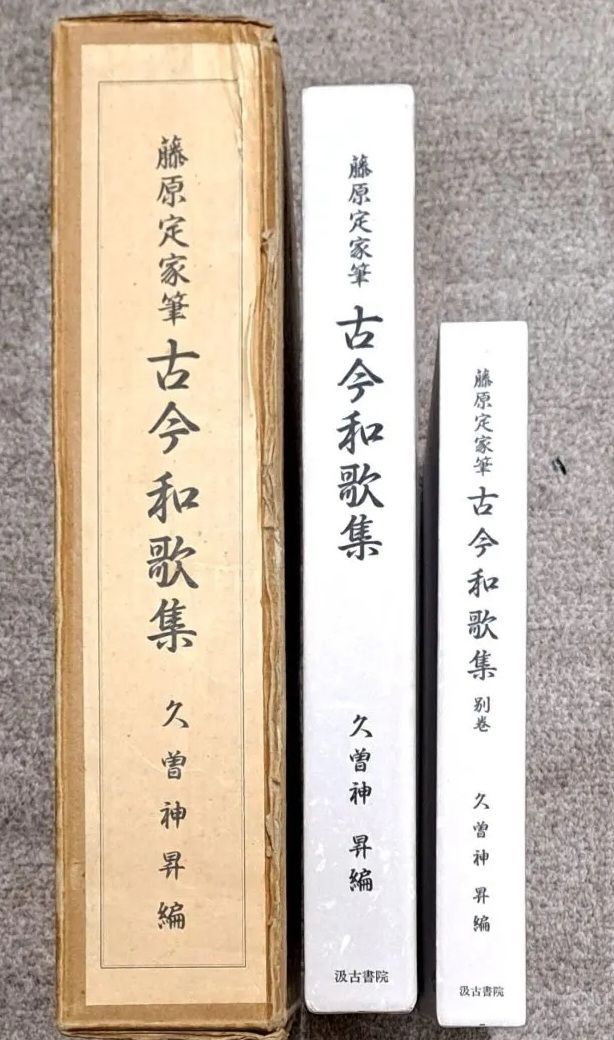 藤原定家筆 古今和歌集 久曽神 昇 編
藤原定家筆 古今和歌集 久曽神 昇編 汲古書院
藤原定家筆 古今和歌集 別巻 久曽神 昇編 汲古書院